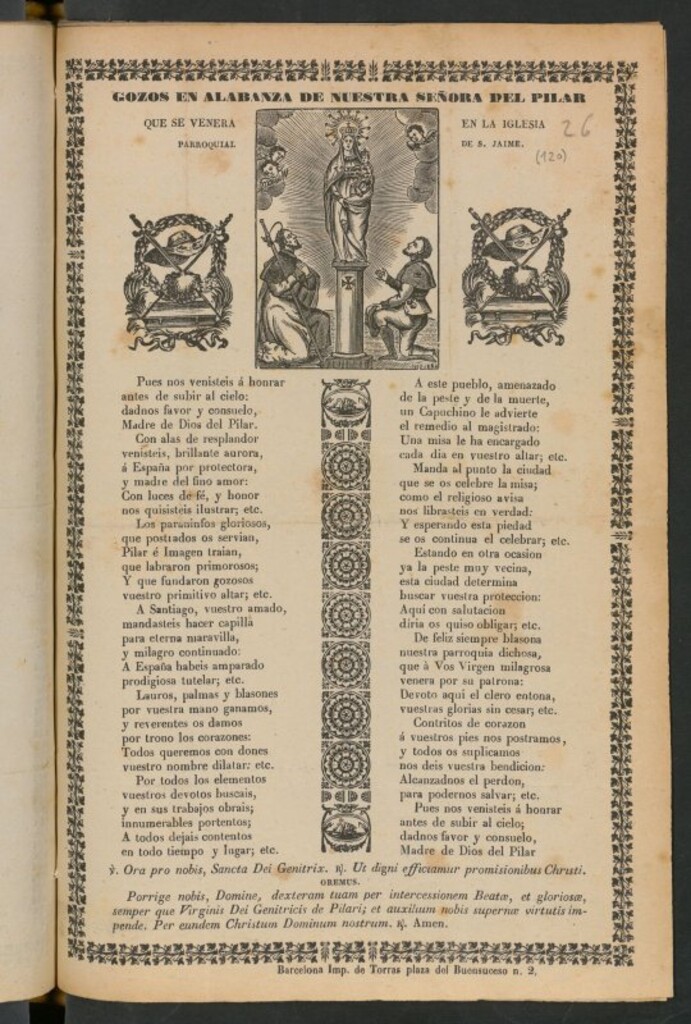 GOZOS EN ALABANZA DE NUESTRA SEÑORA DEL PILAR
QUE SE VENERA EN LA IGLESIA
PARROQUIAL DE S. JAIME.
26
(120)
Pues nos venisteis á honrar
antes de subir al cielo:
dadnos favor y consuelo,
Madre de Dios del Pilar.
Con alas de resplandor
venisteis, brillante aurora,
á España por protectora,
y madre del fino amor:
Con luces de fé, y honor
nos quisisteis ilustrar; etc.
Los paraninfos gloriosos,
que postrados os servian,
Pilar é Imagen traian,
que labraron primorosos;
Y que fundaron gozosos
vuestro primitivo altar; etc.
A Santiago, vuestro amado,
mandasteis hacer capilla
para eterna maravilla,
y milagro continuado:
A España habeis amparado
prodigiosa tutelar; etc.
Lauros, palmas y blasones
por vuestra mano ganamos,
y reverentes os damos
por trono los corazones:
Todos queremos con dones
vuestro nombre dilatar: etc.
Por todos los elementos
vuestros devotos buscais,
y en sus trabajos obrais;
innumerables portentos;
A todos dejais contentos
en todo tiempo y lugar; etc.
A este pueblo, amenazado
de la peste y de la muerte,
un Capuchino le advierte
el remedio al magistrado:
Una misa le ha encargado
cada dia en vuestro altar; etc.
Manda al punto la ciudad
que se os celebre la misa;
como el religioso avisa
nos librasteis en verdad:
Y esperando esta piedad
se os continua el celebrar; etc.
Estando en otra ocasion
ya la peste muy vecina,
esta ciudad determina
buscar vuestra proteccion:
Aqui con salutacion
diria os quiso obligar; etc.
De feliz siempre blasona
nuestra parroquia dichosa,
que à Vos Virgen milagrosa
venera por su patrona:
Devoto aqui el clero entona,
vuestras glorias sin cesar; etc.
Contritos de corazon
á vuestros pies nos postramos,
y todos os suplicamos
nos deis vuestra bendicion:
Alcanzadnos el perdon,
para podernos salvar; etc.
Pues nos venisteis á honrar
antes de subir al cielo;
dadnos favor y consuelo,
Madre de Dios del Pilar
℣. Ora pro nobis, Sancta Dei Genitrix. ℟. Ut digni efficiamur promisionibus Christi.
OREMUS.
Porrige nobis, Domine, dexteram tuam per intercessionem Beatæ, et gloriosæ,
semper que Virginis Dei Genitricis de Pilari; et auxilium nobis supernæ virtutis im-
pende. Per eundem Christum Dominum nostrum. ℟. Amen.
Barcelona Imp. de Torras plaza del Buensuceso n. 2.